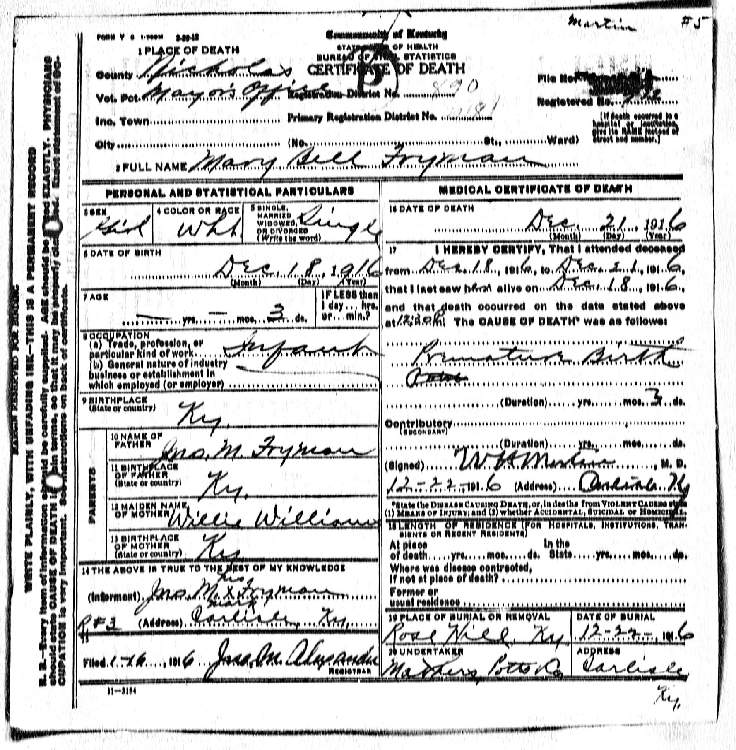 Martin #5
FORM V S 1
Commonwealth of Kentucky
STATE OF HEALTH
BUREAU OF VITAL STATISTICS
CERTIFICATE OF DEATH
1 PLACE OF DEATH
County Nicholas
Vot. Pct. Mayor's Office
Registration District No. 890
File No.
Registered No.
Inc. Town
Primary Registration District No.
City (No. St., Ward)
[If death occurred in a hospital or institution, give its NAME instead of street and number.]
2 FULL NAME Mary Bell Fryman
PERSONAL AND STATISTICAL PARTICULARS
3 SEX Girl
4 COLOR OR RACE Wht
5 SINGLE, MARRIED WIDOWED, OR DIVORCED (Write the word) Single
6 DATE OF BIRTH
Dec. 18, 1916
(Month) (Day) (Year)
7 AGE
— yrs. — mos. 3 ds.
IF LESS than 1 day... hrs. or... min.?
8 OCCUPATION
(a) Trade, profession, or particular kind of work Infant
(b) General nature of industry business or establishment in which employed (or employer)
9 BIRTHPLACE
(State or country) Ky.
PARENTS
10 NAME OF FATHER Jno. M. Fryman
11 BIRTHPLACE OF FATHER (State or country) Ky.
12 MAIDEN NAME OF MOTHER Willie Williams
13 BIRTHPLACE OF MOTHER (State or country) Ky
14 THE ABOVE IS TRUE TO THE BEST OF MY KNOWLEDGE
(Informant) Jno. M. his x mark Fryman
R#3 (Address) Carlisle, Ky.
Filed 1-16, 1916 Jno. M. Alexander
REGISTRAR
11-3184
MEDICAL CERTIFICATE OF DEATH
16 DATE OF DEATH
Dec. 21, 1916
(Month) (Day) (Year)
17 I HEREBY CERTIFY, That I attended deceased
from Dec. 18, 1916, to Dec. 21, 1916,
that I last saw her alive on Dec. 18, 1916,
and that death occurred on the date stated above
at m. The CAUSE OF DEATH* was as follows:
Premature Birth
(Duration) yrs. mos. 3 ds.
Contributory
(SECONDARY)
(Duration) yrs. mos. ds.
(Signed) W H Martin, M. D.
12-22-1916 (Address) Carlisle, Ky
*State the DISEASE CAUSING DEATH, or, in deaths from VIOLENT CAUSES state (1) MEANS OF INJURY; and (2) whether ACCIDENTAL, SUICIDAL OR HOMICIDAL.
18 LENGTH OF RESIDENCE (FOR HOSPITALS, INSTITUTIONS, TRANSIENTS OR RECENT RESIDENTS)
At place of death yrs. mos. ds. In the State yrs. mos. ds.
Where was disease contracted, if not at place of death?
Former or usual residence
19 PLACE OF BURIAL OR REMOVAL
Rose Hill, Ky
DATE OF BURIAL
12-22-, 1916
20 UNDERTAKER
Mathers, Potts Co
ADDRESS
Carlisle
Ky.
MARGIN RESERVED FOR BINDING
WRITE PLAINLY, WITH UNFADING INK—THIS IS A PERMANENT RECORD
N. B.—Every item of information should be carefully supplied. AGE should be stated EXACTLY. PHYSICIANS
should state CAUSE OF DEATH in plain terms, so that it may be properly classified. Exact statement of OC-
CUPATION is very important. See instructions on back of certificate.